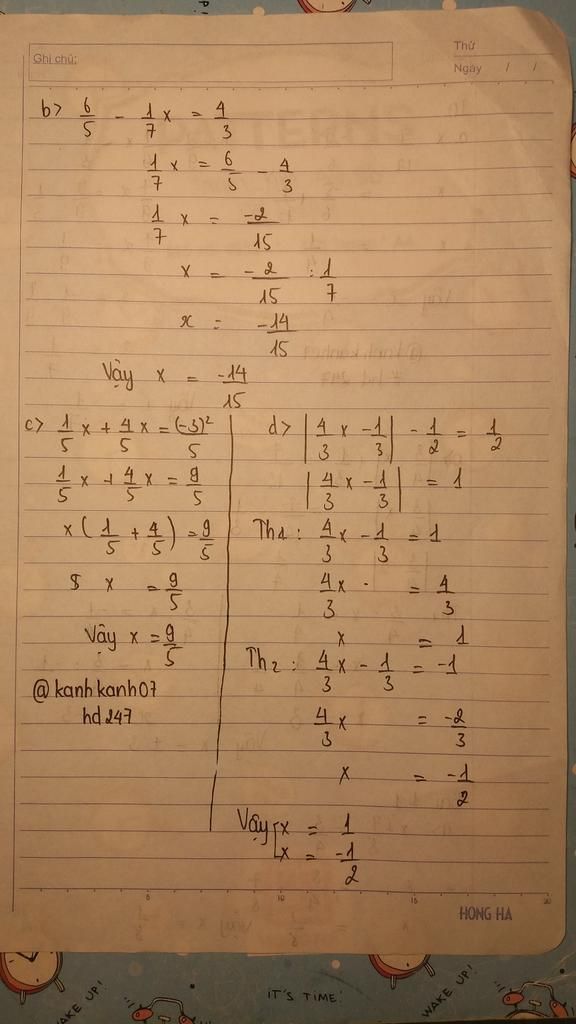 Ghi chú:
Thứ
Ngày / /
b> 6/5 - 1/7 x = 4/3
1/7 x = 6/5 - 4/3
1/7 x = -2/15
x = -2/15 : 1/7
x = -14/15
Vậy x = -14/15
c> 1/5 x + 4/5 x = (-3)²/5
1/5 x + 4/5 x = 9/5
x ( 1/5 + 4/5 ) = 9/5
x = 9/5
Vậy x = 9/5
@kanhkanh07
hd247
d> | 4/3 x - 1/3 | - 1/2 = 1/2
| 4/3 x - 1/3 | = 1
Th1 : 4/3 x - 1/3 = 1
4/3 x = 4/3
x = 1
Th2 : 4/3 x - 1/3 = -1
4/3 x = -2/3
x = -1/2
Vậy [ x = 1
x = -1/2
5 10 15 20
HONG HA
WAKE UP!
IT'S TIME!
WAKE UP!